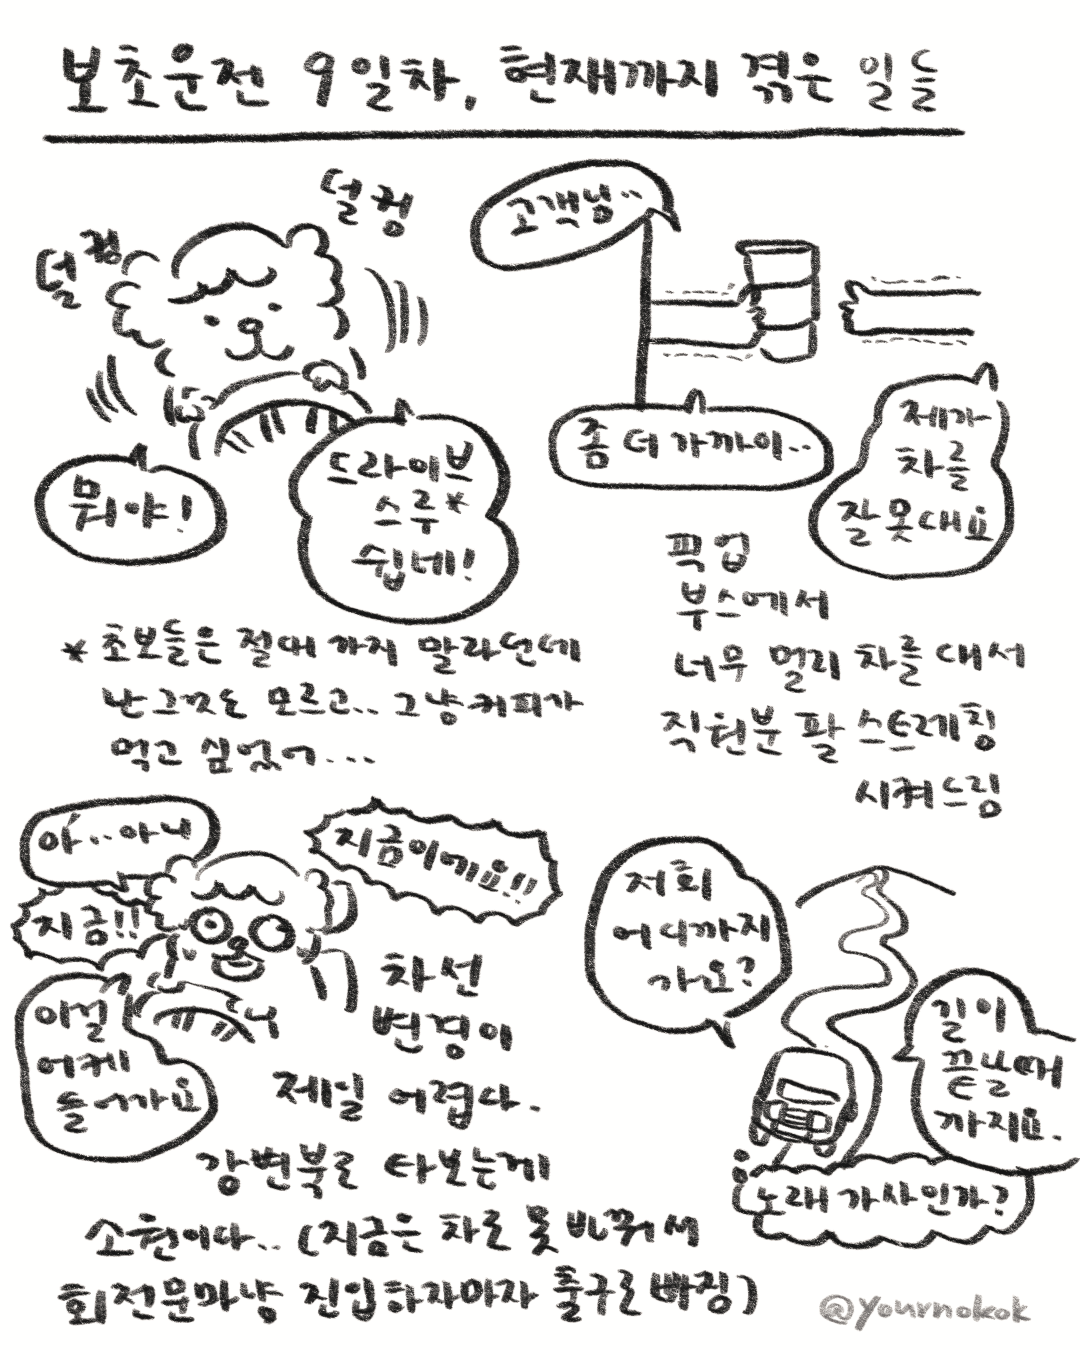 보초운전 9일차, 현재까지 겪은 일들
덜컹
덜컹
뭐야!
드라이브
스루*
쉽네!
* 초보들은 절대 까지 말라던데
난 그것도 모르고.. 그냥 커피가
먹고 싶었어...
고객님..
좀 더 가까이..
제가
차를
잘 못대요
픽업
부스에서
너무 멀리 차를 대서
직원분 팔 스트레칭
시켜드림
아..아니
지금!!
지금이에요!!
이걸
어케
들어가요
차선
변경이
제일 어렵다.
강변북로 타보는게
소원이다.. (지금은 차로 못 바꿔서
회전문마냥 진입하자마자 출구로 빠짐)
저희
어디까지
가요?
길이
끝날때
까지요.
노래 가사인가?
@yournokok